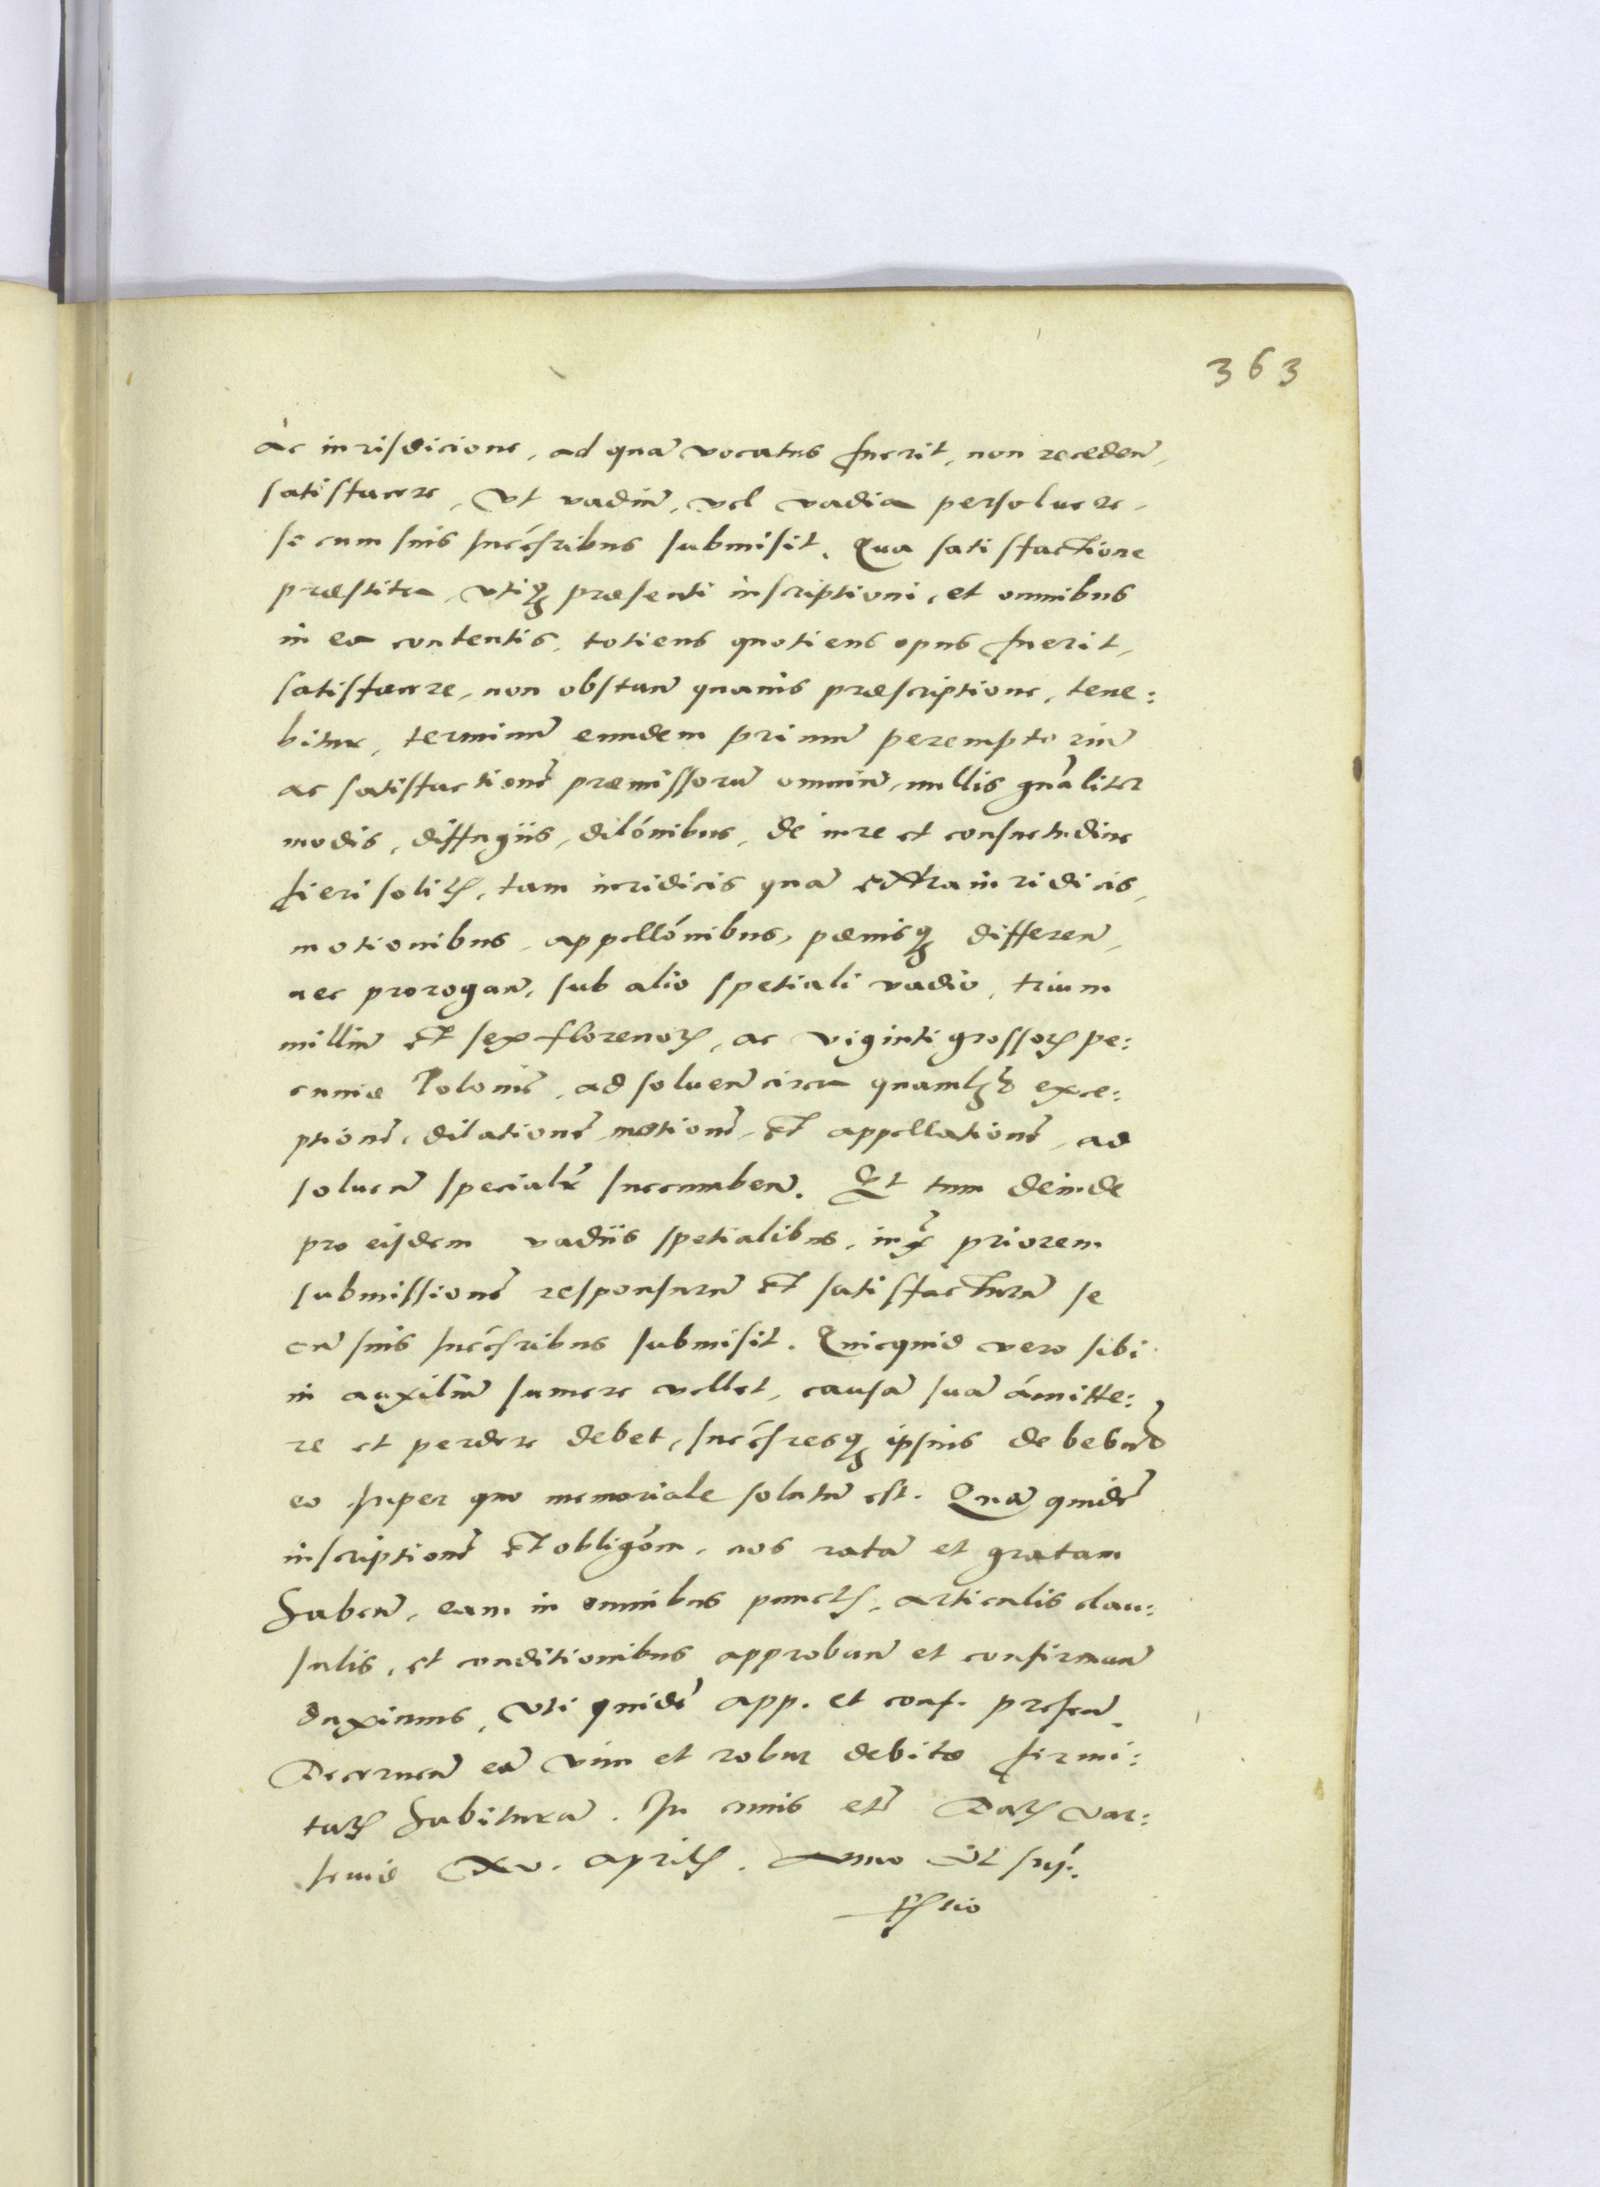 363
ac iurisdicione, ad quã vocatus fuerit, non recedeñ,
satisfacere, vt vadiũ, vel vadia persoluere,
se cum suis succẽsoribus submisit. Qua satisfactione
præstita, vtiq; præsenti inscriptioni, et omnibus
in ea contentis, totiens quotiens opus fuerit,
satisfacere, non obstañ quauis præscriptione, tene:
bitur, terminũ eundem primũ peremptoriũ
ac satisfactionẽ præmissorũ omniũ, nullis gñaliter
modis, diffugiis, dilõnibus, de iure et consuetudine
fieri solitis, tam iuridicis quã extraiuridicis,
motionibus, appellõnibus, pœnisq; differeñ,
nec prorogañ, sub alio spetiali vadio, trium
milliũ et sex florenorum, ac viginti grossorum pe:
cuniæ Poloniẽ, ad solueñ circa quamlibet exce:
ptionẽ, dilationẽ, motionẽ, et appellationẽ, ad
solueñ specialr̃ succumbeñ. Et tum deinde
pro eisdem vadiis spetialibus, iuxta priorem
submissionẽ responsurũ et satisfacturũ se
cũ suis succẽsoribus submisit. Quicquid vero sibi
in auxiliũ sumere vellet, causã suã amitte:
re et perdere debet, succẽsoresq; ipsius debebunt
eo super quo memoriale solutũ est. Quã quidẽ
inscriptionẽ et obligõem, nos ratã et gratam
habeñ, eam in omnibus punctis, articulis clau:
sulis, et conditionibus approbañ et confirmañ
duximus, vti quidẽ app. et conf. preseñ.
Decerneñ eã vim et robur debitæ firmi:
tatis habiturã. In cuius etc̃ Datum Var:
sauiæ xv. Aprilis. Anno vt sup̃.